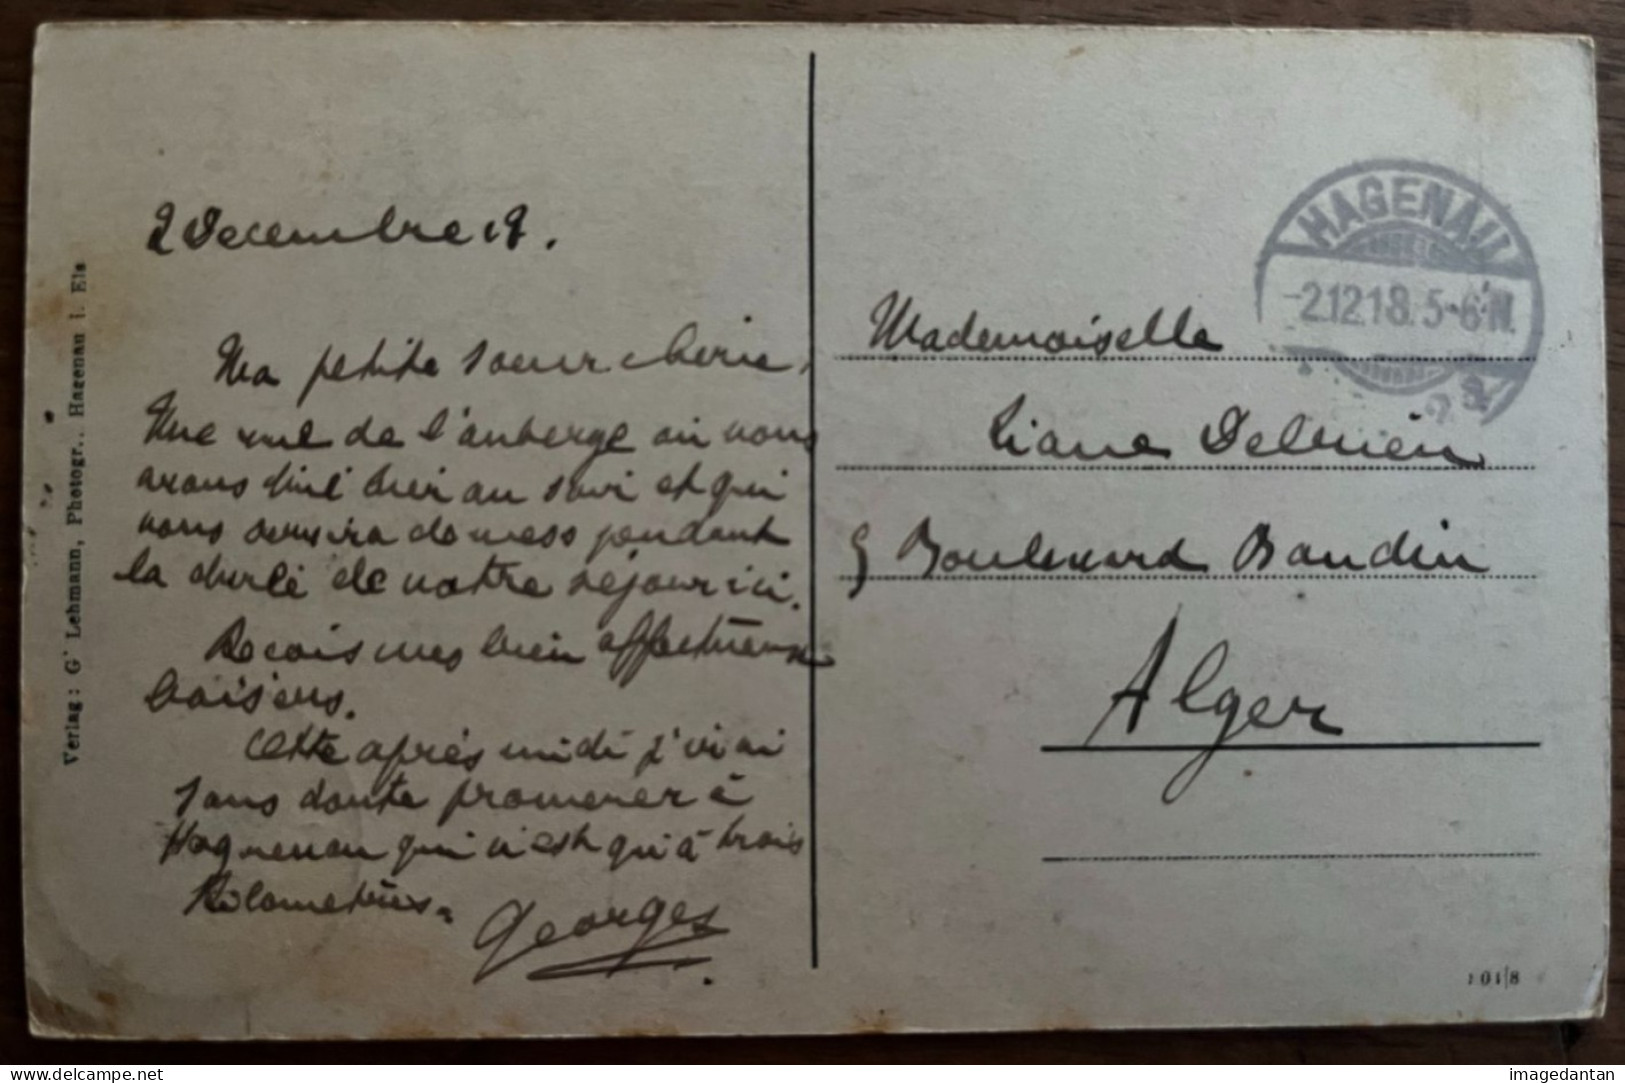 2 Decembre 18.
Ma petite soeur cherie,
Une vue de l'auberge où nous
avons diné hier au soir et qui
nous servira de mess pendant
la durée de notre séjour ici.
Recois mes bien affectueux
baisers.
Cette après midi j'irai
sans doute promener à
Haguenau qui n'est qu'à trois
Kilometres.
Georges
Verlag: G. Lehmann, Photogr., Hagenau i. Els
HAGENAU
-2.12.18.5-6 N.
Mademoiselle
Liane
5 Boulevard Baudin
Alger
101/8
imagedantan
delcampe.net